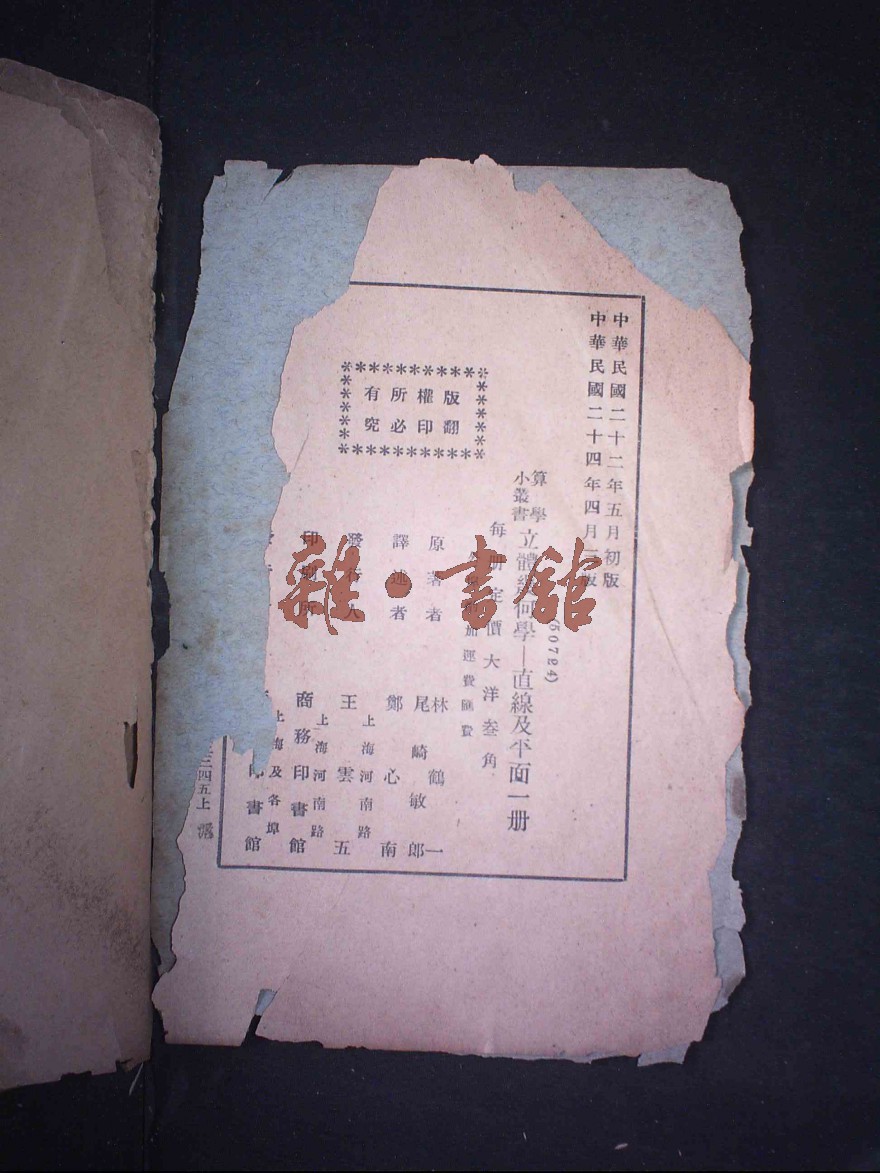 中華民國二十二年五月初版
中華民國二十四年四月二版
(50724)
算學小叢書
立體幾何學—直線及平面一册
每册定價大洋叁角
加運費匯費
版權所有
翻印必究
原著者
林鶴一
尾崎敏郎
譯述者
鄭心南
發行人
王雲五
上海河南路
印刷所
商務印書館
上海河南路
印書館
上海及各埠
三四五上
雜·書舘